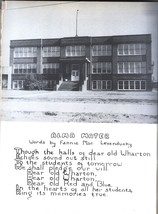 ALMA MATER
Words by Fannie Mae
Though the halls of dear old Wharton
Echoes sound out still
To the students of tomorrow
We shall pledge our will
Dear old Wharton,
Dear old Wharton,
Dear old Red and Blue.
In the hearts of all her students
Ring its memories true.